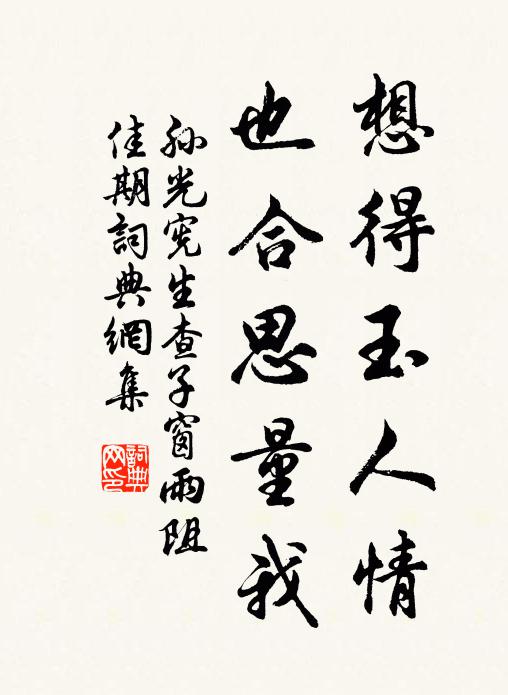 想得玉人情
也合思量我
孫光憲生查子窗雨阻
佳期詞典網集
詞典
网印